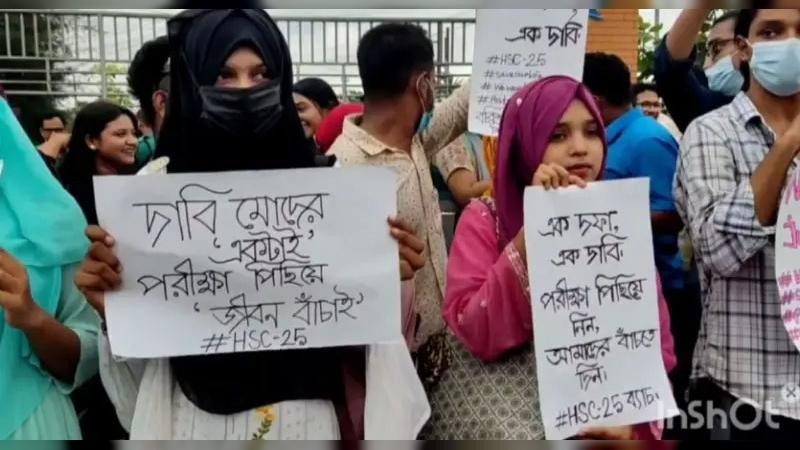 দাবি মোদের
'একটাই'
পরীক্ষা পিছিয়ে
'জীবন বাঁচাই'
#HSC-25
এক দাবি
#HSC-25
এক দফা,
এক দাবি
পরীক্ষা পিছিয়ে
দিন,
আমাদের বাঁচতে
দিন।
#HSC-25 ব্যাচ
InShOt